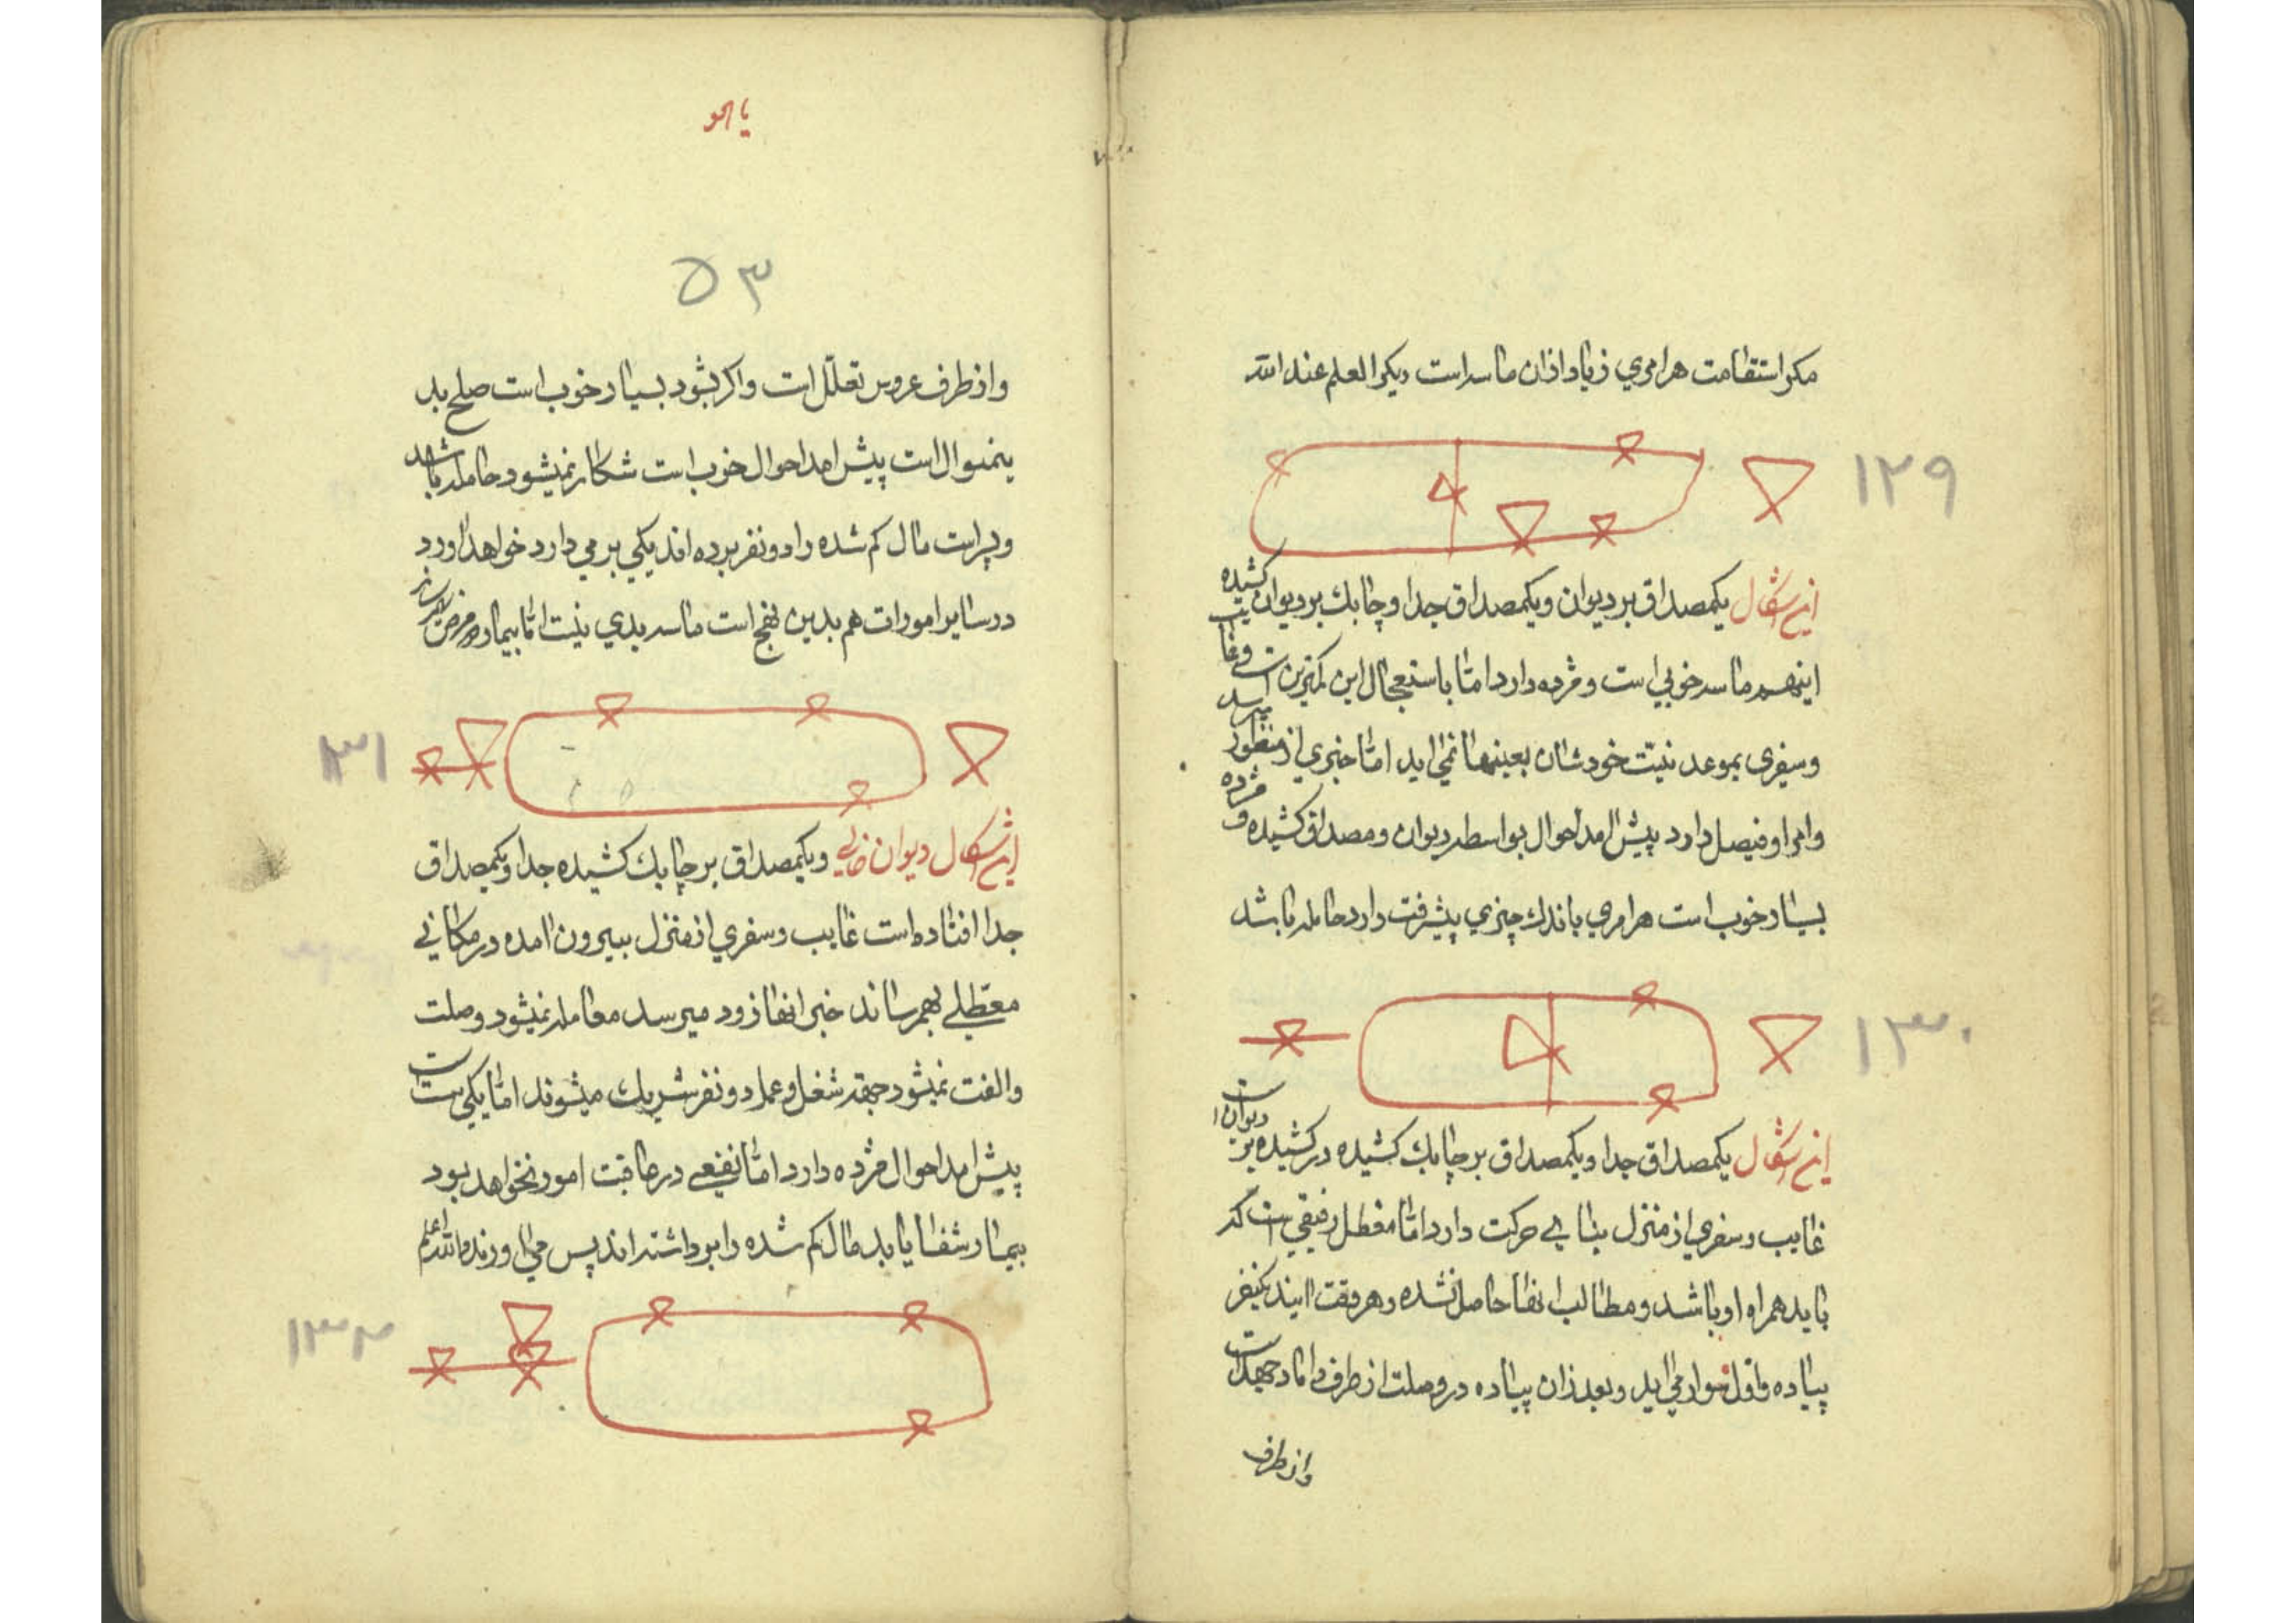 مکر استقامت هر امری زیاد ازان ماسد است دیکر العلم عند الله
۱۲۹
این شکال یکمصداق بر دیوان و یکمصداق جدا و چابك بر دیوان کشیده
اینهم ماسد خوبی است و مژده دارد اما باستعجال این کمترین است و غایب
و سفری بموعد نیت خودشان بعینها نمی اید اما خبری از منظور میرسد
و امر او فیصل دارد پیش امد احوال بواسطه دیوان و مصداق کشیده و مژده
بسیار خوب است هر امری باندك چیزی پیشرفت دارد حامله باشد
۱۳۰
این شکال یکمصداق جدا و یکمصداق بر چابك کشیده در کشیده بر دیوان است
غایب و سفری از منزل بنای حرکت دارد اما معطل رفیقی است که
باید همراه او باشد و مطالب انها حاصل نشده و هر وقت ایند یکنفر
پیاده و اول سوار می اید و بعد ازان پیاده در وصلت از طرف داماد جهد است
و از طرف
یا هو
۵۳
و از طرف عروس تعلل است و اکر بشود بسیار خوب است صلح بد
ینمنوال است پیش امد احوال خوب است شکار نمیشود حامله باشد
و پسر است مال کم شده را دو نفر برده اند یکی بر می دارد خواهد اورد
در سایر امورات هم بدین نهج است ماسد بدی نیست اما بیمار و مرض
۱۳۱
این شکال دیوان خالی و یکمصداق بر چابك کشیده جدا و یکمصداق
جدا افتاده است غایب و سفری از منزل بیرون امده در مکانی
معطلی بهمرساند خبر انها زود میرسد معامله نمیشود وصلت
و الفت نمیشود جهة شغل و عمل دو نفر شریك میشوند اما یکی است
پیش امد احوال مژده دارد اما نفعی در عاقبت امور نخواهد بود
بیمار شفا یابد مال کم شده را برداشته اند پس می اورند والله اعلم
۱۳۲